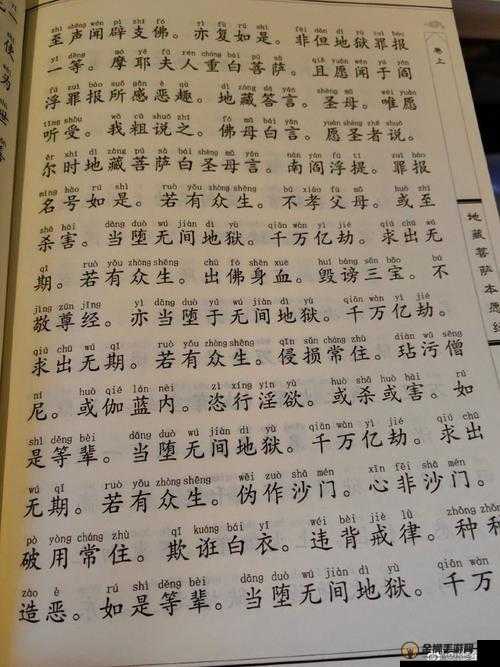 zhì shēng wén pì zhī fó yì fù rú shì fēi dàn dì yù zuì bào
至声闻辟支佛。亦复如是。非但地狱罪报
yì děng mó yē fū rén chóng bái pú sà qiě yuàn wén yú yán
一等。摩耶夫人重白菩萨。且愿闻于阎
fú zuì bào suǒ gǎn è qù dì zàng dá yán shèng mǔ wéi yuàn
浮罪报所感恶趣。地藏答言。圣母。唯愿
tīng shòu wǒ cū shuō zhī fó mǔ bái yán yuàn shèng zhě shuō
听受。我粗说之。佛母白言。愿圣者说。
ěr shí dì zàng pú sà bái shèng mǔ yán nán yán fú tí zuì bào
尔时地藏菩萨白圣母言。南阎浮提。罪报
míng hào rú shì ruò yǒu zhòng shēng bú xiào fù mǔ huò zhì
名号如是。若有众生。不孝父母。或至
shā hài dāng duò wú jiàn dì yù qiān wàn yì jié qiú chū wú
杀害。当堕无间地狱。千万亿劫。求出无
qī ruò yǒu zhòng shēng chū fó shēn xuè huǐ bàng sān bǎo bú
期。若有众生。出佛身血。毁谤三宝。不
jìng zūn jīng yì dāng duò yú wú jiàn dì yù qiān wàn yì jié
敬尊经。亦当堕于无间地狱。千万亿劫。
qiú chū wú qī ruò yǒu zhòng shēng qīn sǔn cháng zhù diàn wū sēng
求出无期。若有众生。侵损常住。玷污僧
ní huò qié lán nèi zì xíng yín yù huò shā huò hài rú
尼。或伽蓝内。恣行淫欲。或杀或害。如
shì děng bèi dāng duò wú jiàn dì yù qiān wàn yì jié qiú chū
是等辈。当堕无间地狱。千万亿劫。求出
wú qī ruò yǒu zhòng shēng wěi zuò shā mén xīn fēi shā mén
无期。若有众生。伪作沙门。心非沙门。
pò yòng cháng zhù qī kuáng bái yī wéi bèi jiè lǜ zhǒng zhǒng
破用常住。欺诳白衣。违背戒律。种种
zào è rú shì děng bèi dāng duò wú jiàn dì yù qiān wàn
造恶。如是等辈。当堕无间地狱。千万
卷上
地藏菩萨本愿经
手游网